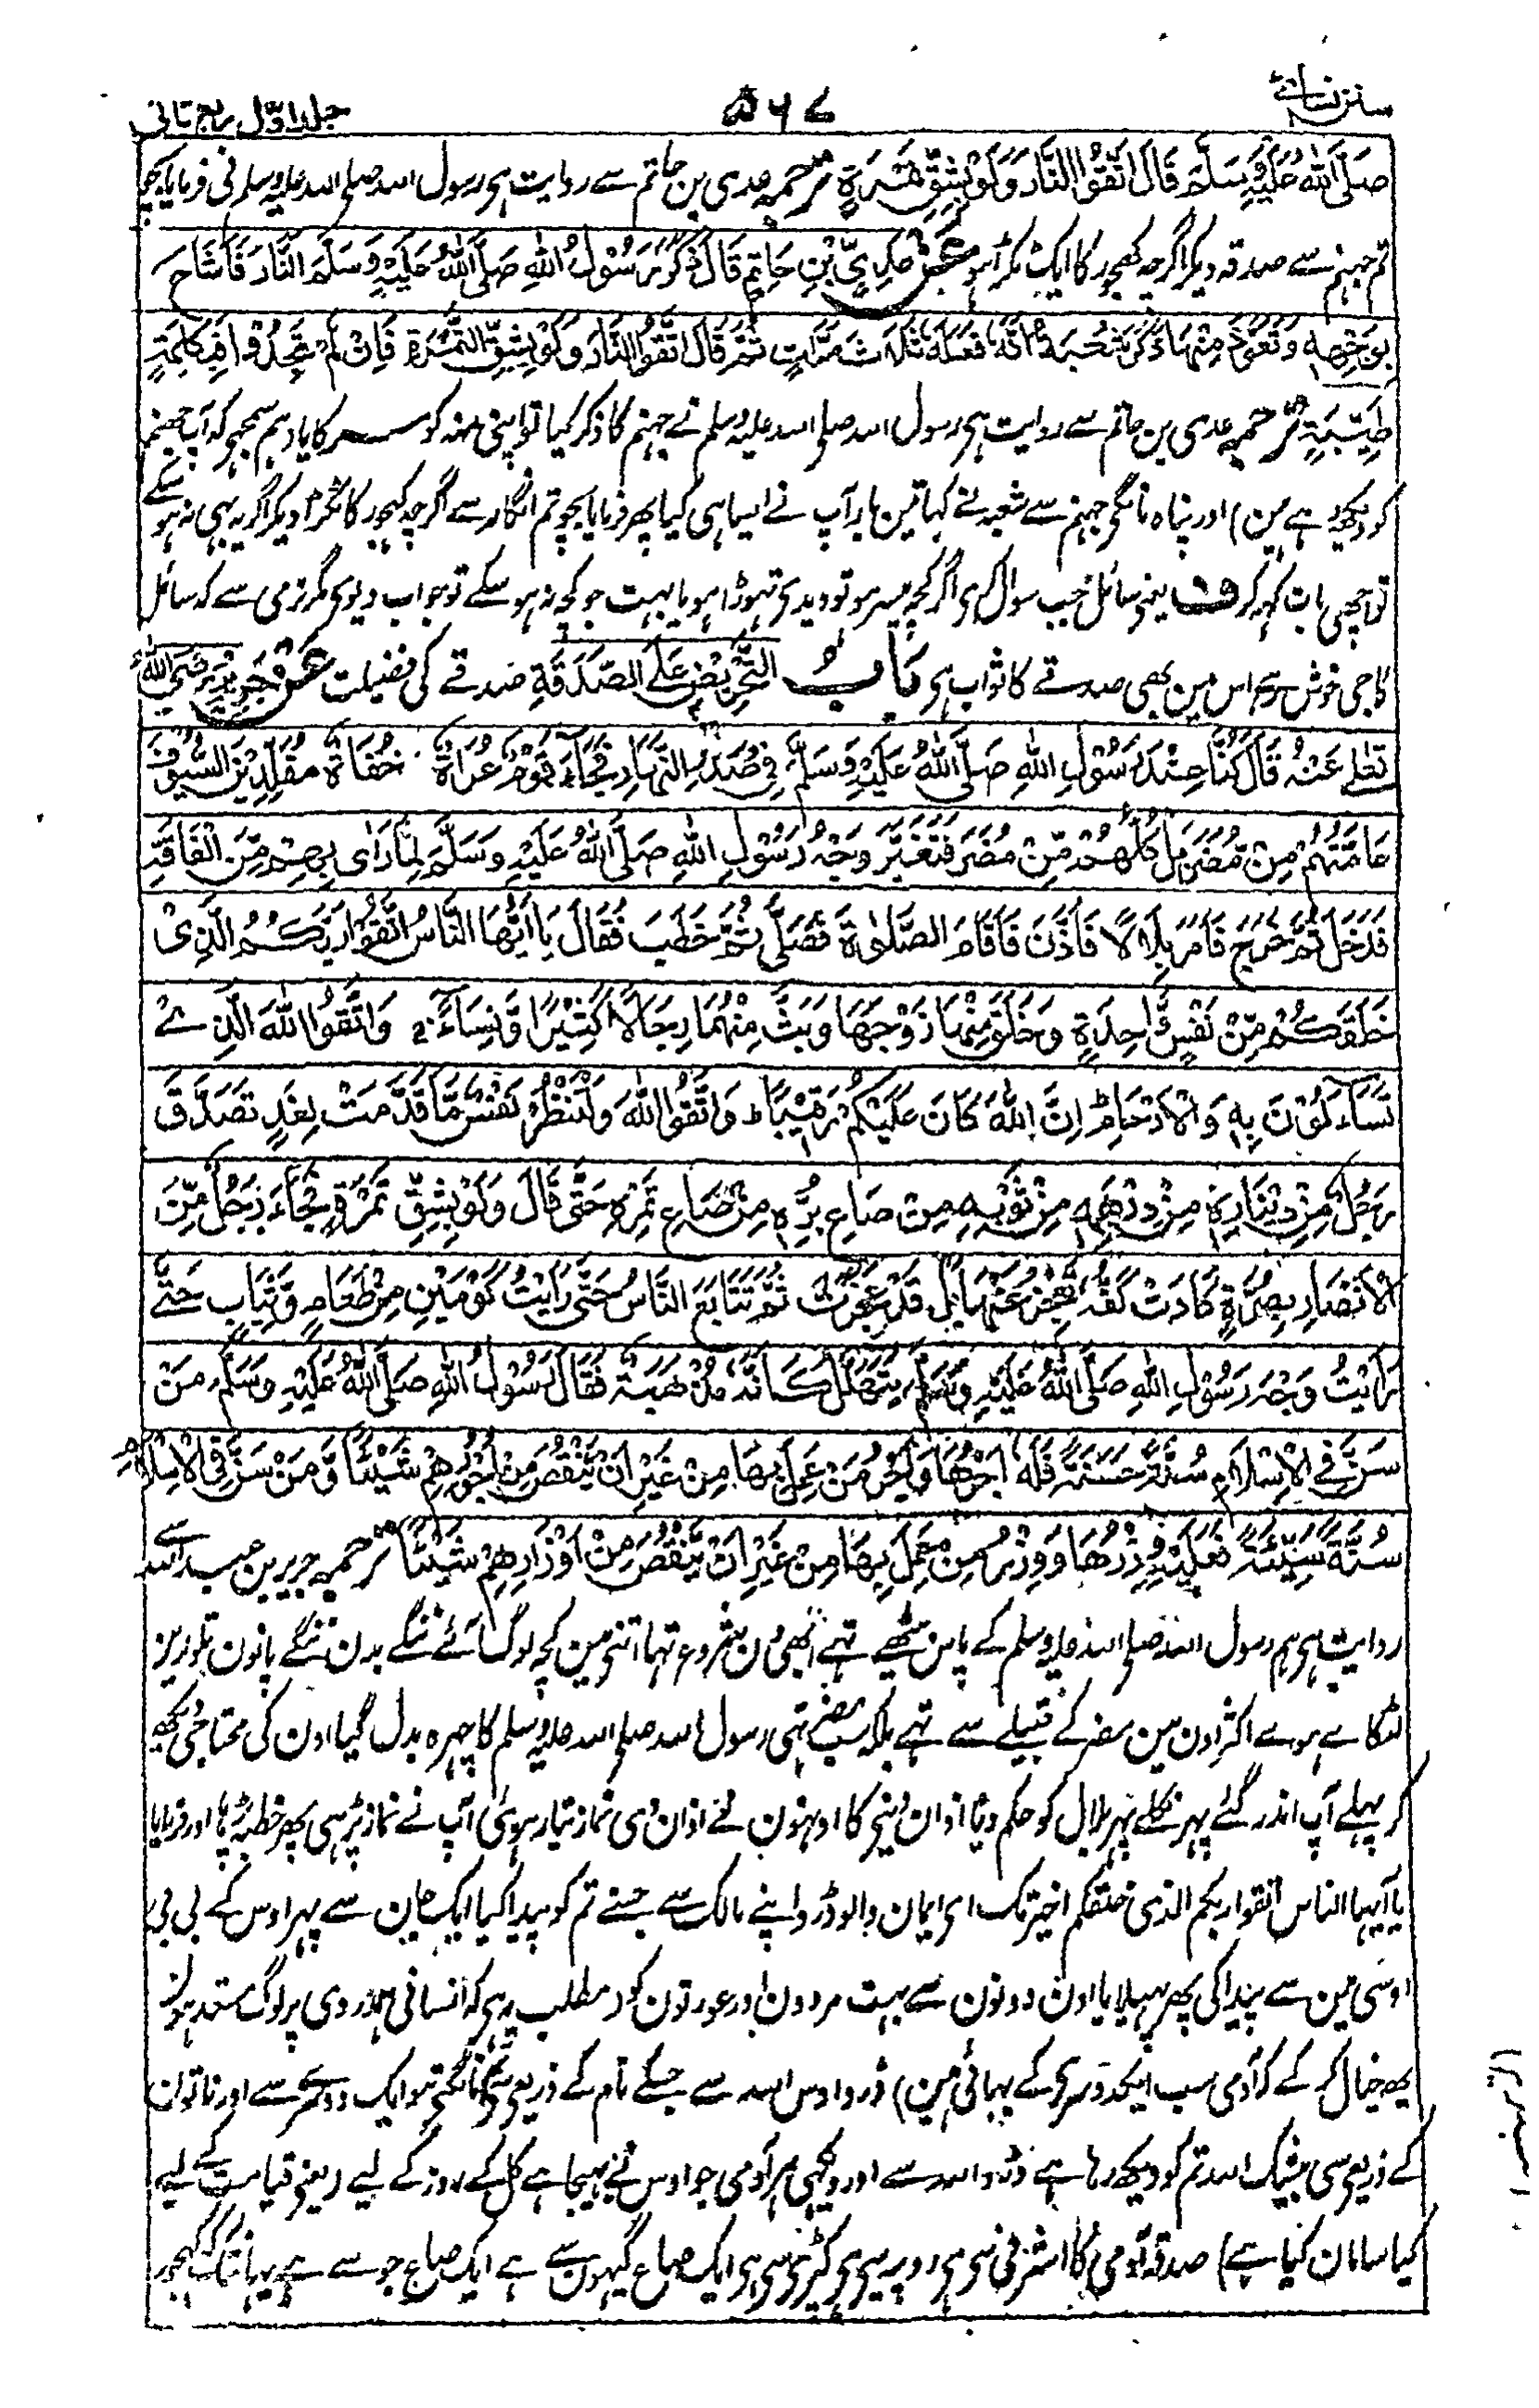 سنن نسائے
۵۶۷
جلد اوّل ربع ثانی
صَلَّى اللّٰهُ عَلَيْهِ وَسَلَّمَ قَالَ اتَّقُوا النَّارَ وَلَوْ بِشِقِّ تَمْرَةٍ ترجمہ عدی بن حاتم سے روایت ہی رسول اللہ صلی اللہ علیہ وسلم نی فرمایا بچو
تم جہنم سے صدقہ دیکر اگرچہ کھجور کا ایک ٹکڑا ہو عَنْ عَدِيِّ بْنِ حَاتِمٍ قَالَ ذَكَرَ رَسُوْلُ اللّٰهِ صَلَّى اللّٰهُ عَلَيْهِ وَسَلَّمَ النَّارَ فَاَشَاحَ
بِوَجْهِهٖ وَتَعَوَّذَ مِنْهَا ذَكَرَ شُعْبَةُ اَنَّهٗ فَعَلَهٗ ثَلٰثَ مَرَّاتٍ ثُمَّ قَالَ اتَّقُوا النَّارَ وَلَوْ بِشِقِّ التَّمْرَةِ فَاِنْ لَّمْ تَجِدُوْا فَبِكَلِمَةٍ
طَيِّبَةٍ ترجمہ عدی بن حاتم سے روایت ہی رسول اللہ صلی اللہ علیہ وسلم نے جہنم کا ذکر کیا تو اپنی منہ کو سرکایا دہم سمجہی کہ آپ جہنم
کو دیکھہ رہے ہین) اور پناہ مانگی جہنم سے شعبہ نے کہا تین بار آپ نے ایسا ہی کیا پھر فرمایا بچو تم انگار سے اگرچہ کہجور کا ٹکڑا دیکر اگر یہ بہی نہ ہو سکے
تو اچھی بات کہہ کر ف یعنی سائل جب سوال کری اگر کچھ میسر ہو تو دیدی تہوڑا ہو یا بہت جو کچھ نہ ہو سکے تو جواب دیوی مگر نرمی سے کہ سائل
کا جی خوش رہے اس مین بھی صدقے کا ثواب ہی بَابُ التَّحْرِيْضِ عَلَى الصَّدَقَةِ صدقے کی فضیلت عَنْ جَرِيْرٍ رَضِيَ اللّٰهُ
تَعَالٰى عَنْهُ قَالَ كُنَّا عِنْدَ رَسُوْلِ اللّٰهِ صَلَّى اللّٰهُ عَلَيْهِ وَسَلَّمَ فِيْ صَدْرِ النَّهَارِ فَجَاءَ قَوْمٌ عُرَاةٌ حُفَاةٌ مُقَلِّدِيْنَ السُّيُوْفَ
عَامَّتُهُمْ مِنْ مُّضَرَ بَلْ كُلُّهُمْ مِّنْ مُّضَرَ فَتَغَيَّرَ وَجْهُ رَسُوْلِ اللّٰهِ صَلَّى اللّٰهُ عَلَيْهِ وَسَلَّمَ لِمَا رَاٰى بِهِمْ مِّنَ الْفَاقَةِ
فَدَخَلَ ثُمَّ خَرَجَ فَاَمَرَ بِلَالًا فَاَذَّنَ فَاَقَامَ الصَّلٰوةَ فَصَلّٰى ثُمَّ خَطَبَ فَقَالَ يَا اَيُّهَا النَّاسُ اتَّقُوْا رَبَّكُمُ الَّذِيْ
خَلَقَكُمْ مِّنْ نَفْسٍ وَّاحِدَةٍ وَخَلَقَ مِنْهَا زَوْجَهَا وَبَثَّ مِنْهُمَا رِجَالًا كَثِيْرًا وَّنِسَاءً وَاتَّقُوا اللّٰهَ الَّذِيْ
تَسَاءَلُوْنَ بِهٖ وَالْاَرْحَامَ اِنَّ اللّٰهَ كَانَ عَلَيْكُمْ رَقِيْبًا ط وَاتَّقُوا اللّٰهَ وَلْتَنْظُرْ نَفْسٌ مَّا قَدَّمَتْ لِغَدٍ تَصَدَّقَ
رَجُلٌ مِنْ دِيْنَارِهٖ مِنْ دِرْهَمِهٖ مِنْ ثَوْبِهٖ مِنْ صَاعِ بُرِّهٖ مِنْ صَاعِ تَمْرِهٖ حَتّٰى قَالَ وَلَوْ بِشِقِّ تَمْرَةٍ فَجَاءَ رَجُلٌ مِّنَ
الْاَنْصَارِ بِصُرَّةٍ كَادَتْ كَفُّهٗ تَعْجِزُ عَنْهَا بَلْ قَدْ عَجَزَتْ ثُمَّ تَتَابَعَ النَّاسُ حَتّٰى رَاَيْتُ كَوْمَيْنِ مِنْ طَعَامٍ وَّثِيَابٍ حَتّٰى
رَاَيْتُ وَجْهَ رَسُوْلِ اللّٰهِ صَلَّى اللّٰهُ عَلَيْهِ وَسَلَّمَ يَتَهَلَّلُ كَاَنَّهٗ مُذْهَبَةٌ فَقَالَ رَسُوْلُ اللّٰهِ صَلَّى اللّٰهُ عَلَيْهِ وَسَلَّمَ مَنْ
سَنَّ فِي الْاِسْلَامِ سُنَّةً حَسَنَةً فَلَهٗ اَجْرُهَا وَاَجْرُ مَنْ عَمِلَ بِهَا مِنْ غَيْرِ اَنْ يَّنْقُصَ مِنْ اُجُوْرِهِمْ شَيْئًا وَّمَنْ سَنَّ فِي الْاِسْلَامِ
سُنَّةً سَيِّئَةً فَعَلَيْهِ وِزْرُهَا وَوِزْرُ مَنْ عَمِلَ بِهَا مِنْ غَيْرِ اَنْ يَّنْقُصَ مِنْ اَوْزَارِهِمْ شَيْئًا ترجمہ جریر بن عبداللہ سے
روایت ہی ہم رسول اللہ صلی اللہ علیہ وسلم کے پاس بیٹھے تہے ابھی دن شروع تہا اتنی مین کچھ لوگ آئے ننگے بدن ننگے پانون تلوارین
لٹکاے ہوے اکثر اون مین مضر کے قبیلے سے تہے بلکہ سب مضر تہی رسول اللہ صلی اللہ علیہ وسلم کا چہرہ بدل گیا اون کی محتاجی دیکھہ
کر پہلے آپ اندر گئے پہر نکلے پہر بلال کو حکم دیا اذان دینی کا اونہون نے اذان دی نماز تیار ہوئی آپ نے نماز پڑہی پھر خطبہ پڑہا اور فرمایا
یا ایہا الناس اتقوا ربکم الذی خلقکم اخیر تک ای ایمان والو ڈرو اپنے مالک سے جسنے تم کو پیدا کیا ایک جان سے پہر اوس کے بی بی
اوسی مین سے پیدا کی پھر پہیلایا اون دونون سے بہت مردون اور عورتون کو (مطلب یہ ہی کہ انسانی ہمدردی پر لوگ مستعد ہون
یہ خیال کر کے کہ آدمی سب ایکدوسری کے بہائی ہین) ڈرو اوس اللہ سے جسکے نام کے ذریعہ سے مانگتی ہو ایک دوسرے سے اور ناتون
کے ذریعہ سی بیشک اللہ تم کو دیکھ رہا ہے ڈرو اللہ سے اور دیکھی ہر آدمی جو اوس نے بہیجا ہے کل کے روز کے لیے (یعنی قیامت کے لیے
کیا سامان کیا ہے) صدقہ آدمی کا اشرفی سی ہی روپیہ سی ہی کپڑی سی ہی ایک صاع گیہون سے ہے ایک صاع جو سے ہے یہانتک کہ کہجور